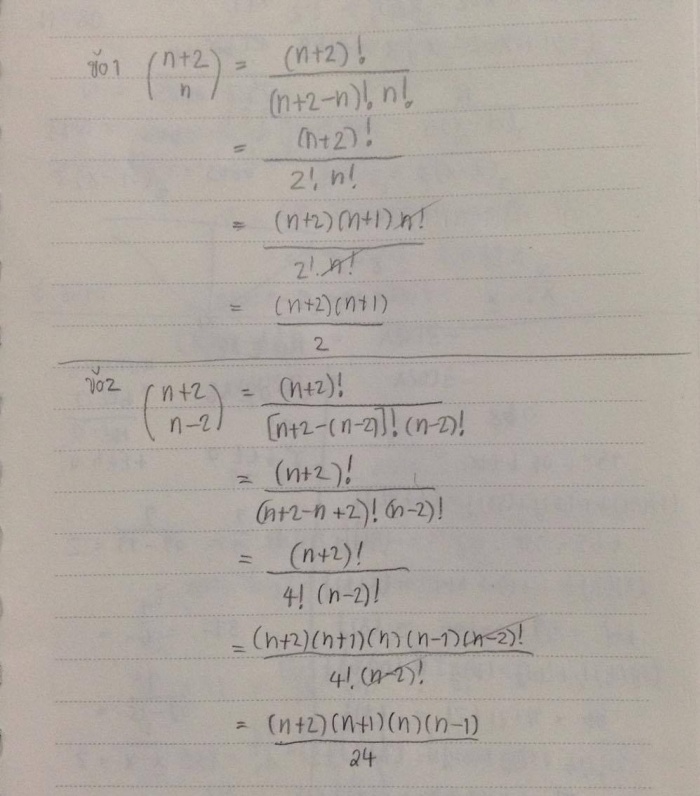 ข้อ1 (n+2 n) = (n+2)! / (n+2-n)! n!
= (n+2)! / 2! n!
= (n+2)(n+1)n! / 2! n!
= (n+2)(n+1) / 2
ข้อ2 (n+2 n-2) = (n+2)! / [n+2-(n-2)]! (n-2)!
= (n+2)! / (n+2-n+2)! (n-2)!
= (n+2)! / 4! (n-2)!
= (n+2)(n+1)(n)(n-1)(n-2)! / 4! (n-2)!
= (n+2)(n+1)(n)(n-1) / 24